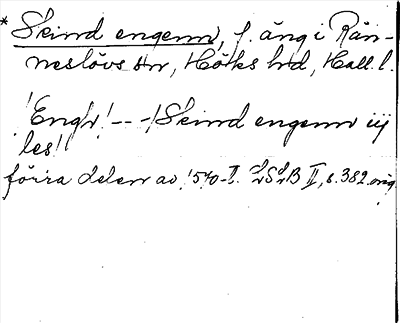 * Skind engenn, f. äng i Rän-
neslövs sn, Höks hd, Hall. l.
'Engh' --- 'Skind engenn iij
les'
förra delen av 1540-t. LSB II, s. 382 orig